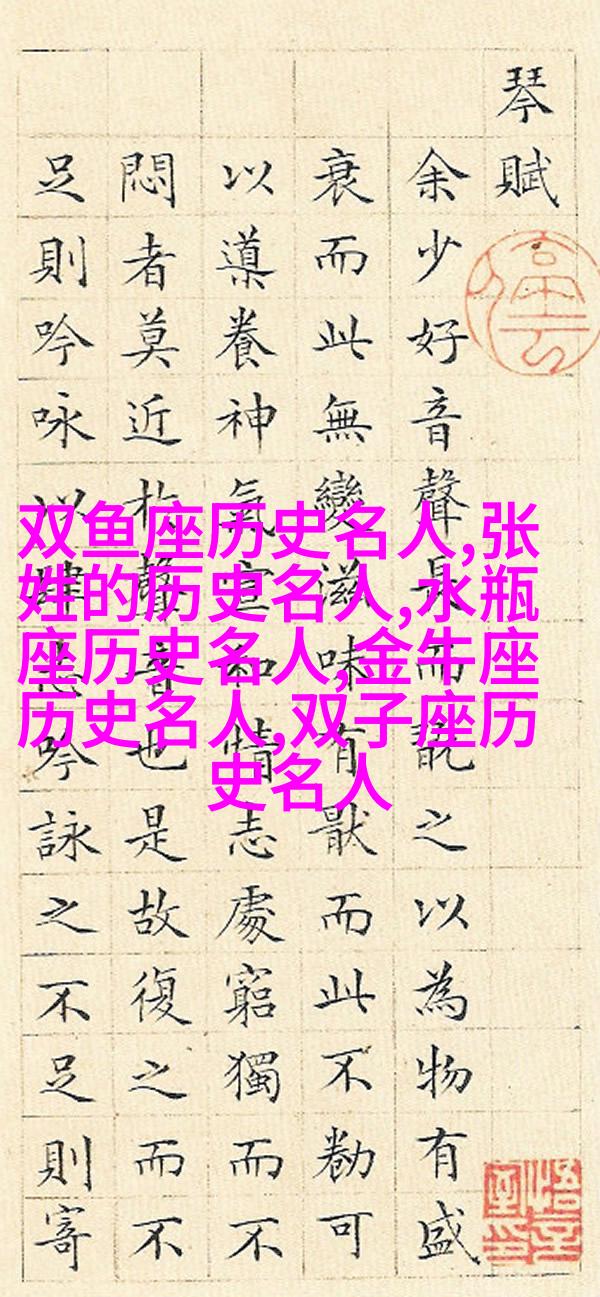 琴賦
余少好音聲長而翫之以為物有盛
衰而此無變滋味有猒而此不勌可
以導養神氣宣和情志處窮獨而不
悶者莫近於聲音也是故復之而不
足則吟咏以肆志吟詠之不足則寄
双鱼座历史名人,张
姓的历史名人,水瓶
座历史名人,金牛座
历史名人,双子座历
史名人